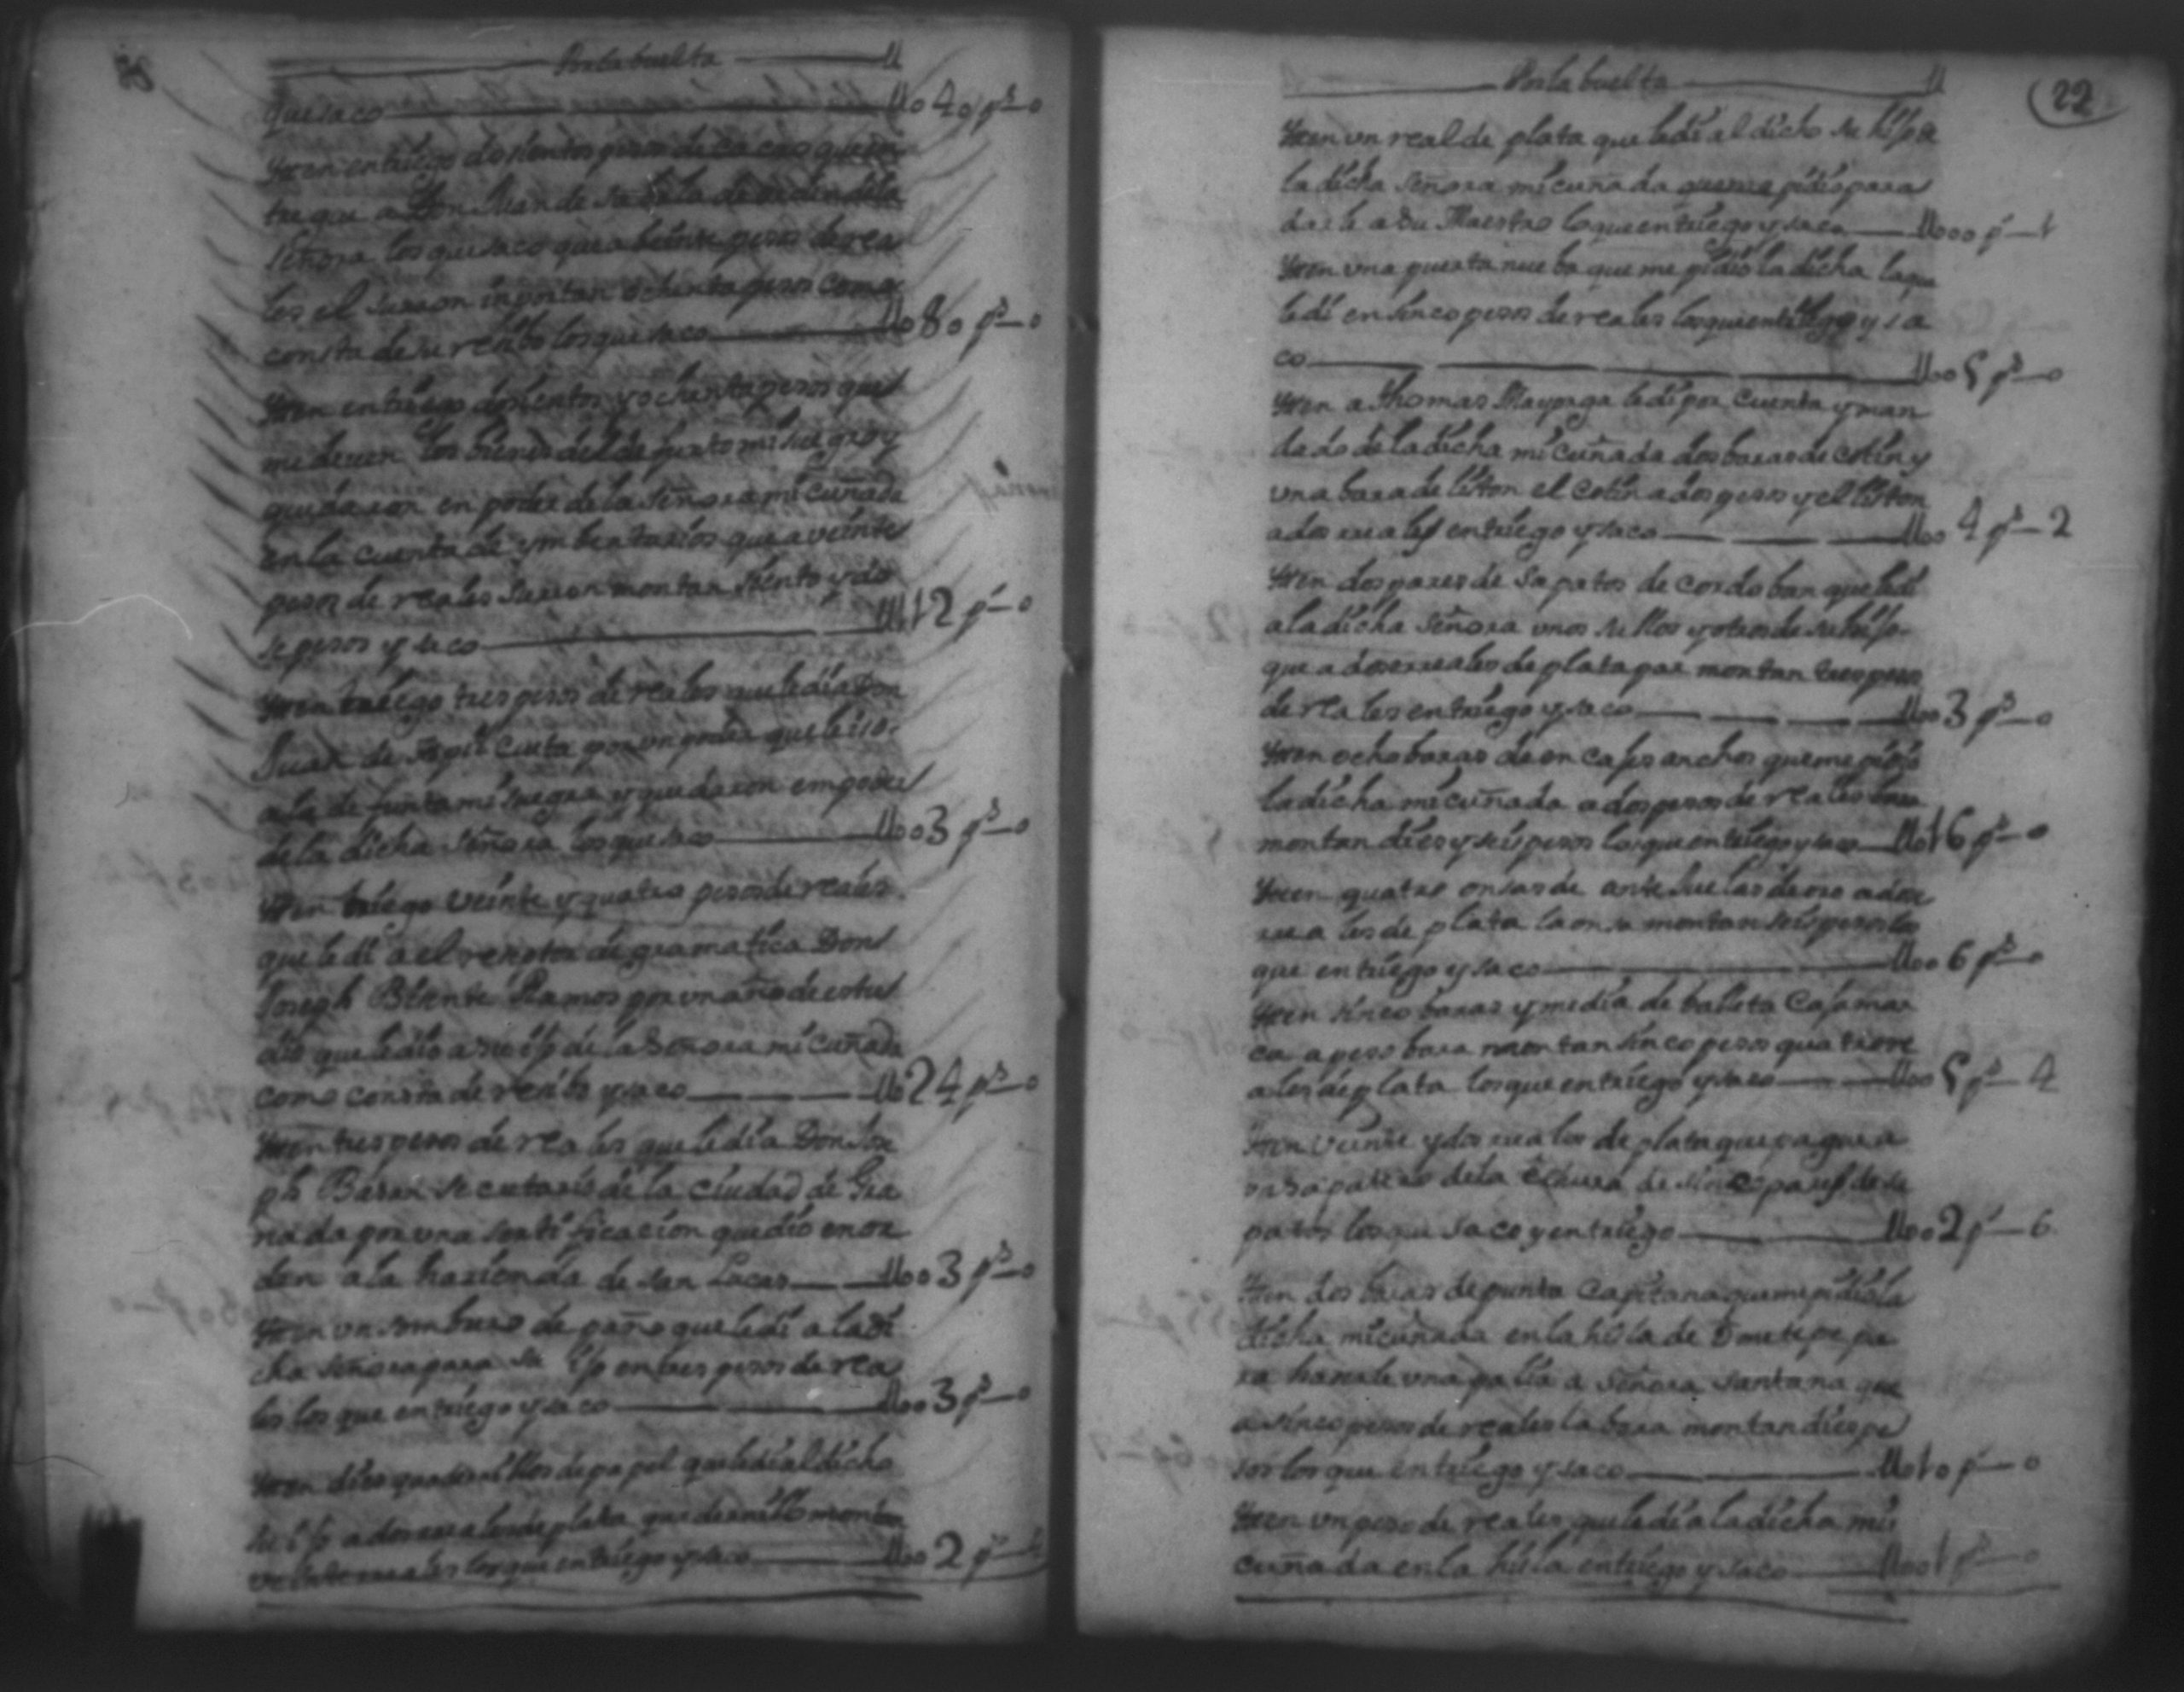 Por la buelta
que saco 11o40 ps—o
Yten entriego dosientos pesos de cacao que en
tregue a Don Juan de la
Señora los que saco que a beinte pesos de rea
les el surron inportan ochenta pesos como
consta de su resibo los que saco 11o80 ps—o
Yten entriego dosientos y ochenta pesos que
me deven los bienes del defunto mi suegro y
quedaron en poder de la Señora mi cuñada
en la cuenta de ymbentarios que a veinte
pesos de reales surron montan siento y do
se pesos y saco 11112 ps—o
Yten triego tres pesos de reales que le di a Don
Juan de Cueta por un poder que le iso
a la defunta mi suegra y quedaron em poder
de la dicha Señora los que saco 11oo3 ps—o
Yten triego veinte y quatro pesos de reales
que le di a el reseptor de gramatica Don
Joseph Bisente Ramos por un año de estu
dio que le dio a su ijo de la Señora mi cuñada
como consta de resibo y saco 11o24 ps—o
Yten tres pesos de reales que le di a Don Jose
ph secretario de la ciudad de Gra
nada por una sertificacion que dio en or
den a la hazienda de San Lucas 11oo3 ps—o
Yten un sombrero de paño que le di a la di
cha Señora para su ijo en tres pesos de rea
les los que entriego y saco 11oo3 ps—o
Yten dies quadernillos de papel que le di al dicho
su ijo a dos reales de plata quadernillo montan
veinte reales los que entriego y saco 11oo2 ps—4
22
Por la buelta
Yten un real de plata que le di al dicho su hijo a
la dicha Señora mi cuñada que me pidio para
darle a su Maestro lo que entriego y saco 11ooo ps—1
Yten una puerta nueba que me pidio la dicha la que
le di en sinco pesos de reales los que entriego y sa
co 11oo5 ps—o
Yten a Thomas Mayorga le di por cuenta y man
dado de la dicha mi cuñada dos baras de cotin y
una bara de liston el cotin a dos pesos y el liston
a dos reales entriego y saco 11oo4 ps—2
Yten dos pares de sapatos de cordoban que le di
a la dicha Señora unos sullos y otros de su hijo
que a dose reales de plata par montan tres pesos
de reales entriego y saco 11oo3 ps—o
Yten ocho baras de encajes anchos que me pidio
la dicha mi cuñada a dos pesos de reales bara
montan dies y seis pesos los que entriego y saco 11o16 ps—o
Yten quatro onsas de ante juelas de oro a dose
reales de plata la onsa montan seis pesos los
que entriego y saco 11oo6 ps—o
Yten sinco baras y media de balleta Cajamar
ca a peso bara montan sinco pesos quatro re
ales de plata los que entriego y saco 11oo5 ps—4
Yten veinte y dos reales de plata que pague a
un sapatero de la echura de sinco pares de sa
patos los que saco y entriego 11oo2 ps—6
Yten dos baras de punta Capitana que me pidio la
dicha mi cuñada en la hisla de Ometepe pa
ra haserle una palia a Señora Santana que
a sinco pesos de reales la bara montan dies pe
sos los que entriego y saco 11o1o ps—o
Yten un peso de reales que le di a la dicha mi
cuñada en la hisla entriego y saco 11oo1 ps—o